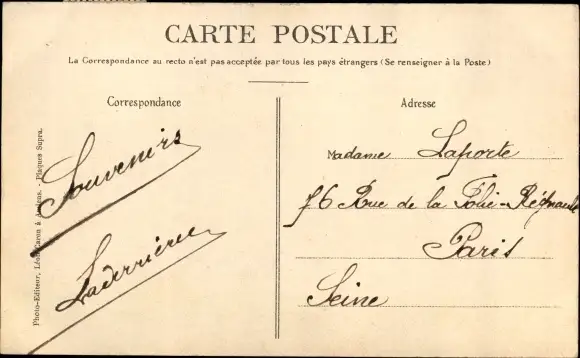 CARTE POSTALE
La Correspondance au recto n'est pas acceptée par tous les pays étrangers (Se renseigner à la Poste)
Correspondance
Souvenirs
Laderrière
Photo-Editeur, Léon Caron à Amiens. - Plaques Supra.
Adresse
Madame Laporte
76 Rue de la Folie-Régnault
Paris
Seine